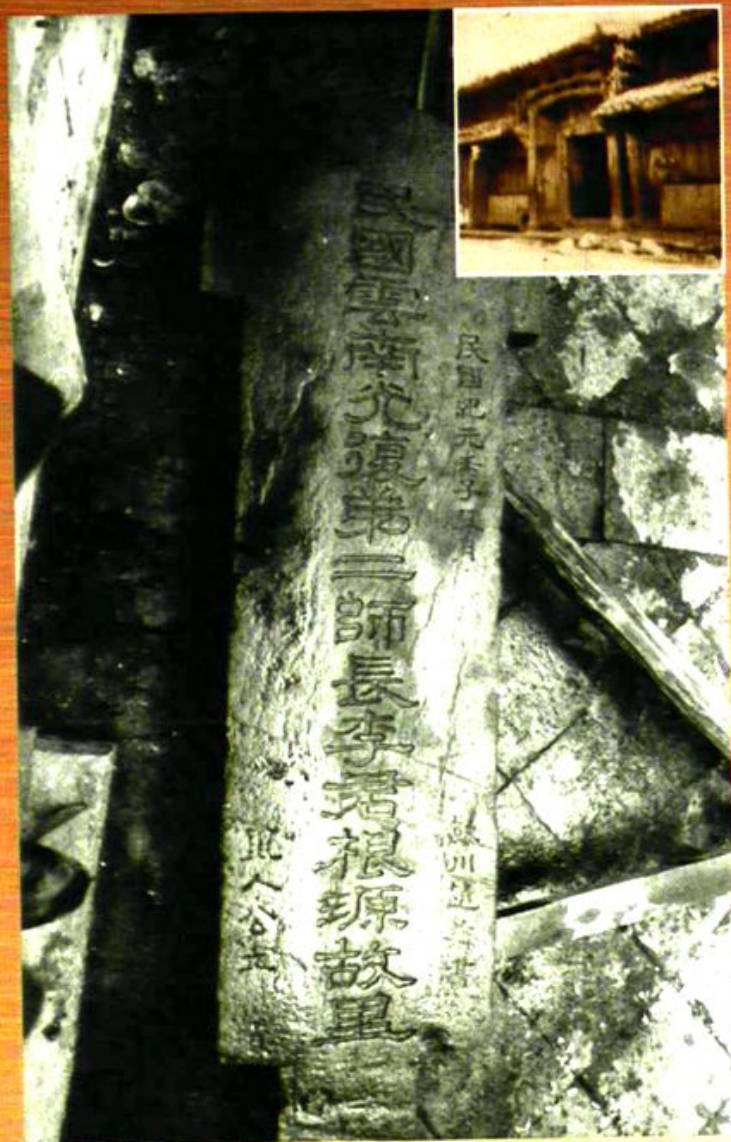 民國紀元壬子 月
民國雲南光復第二師長李君根源故里
人公立